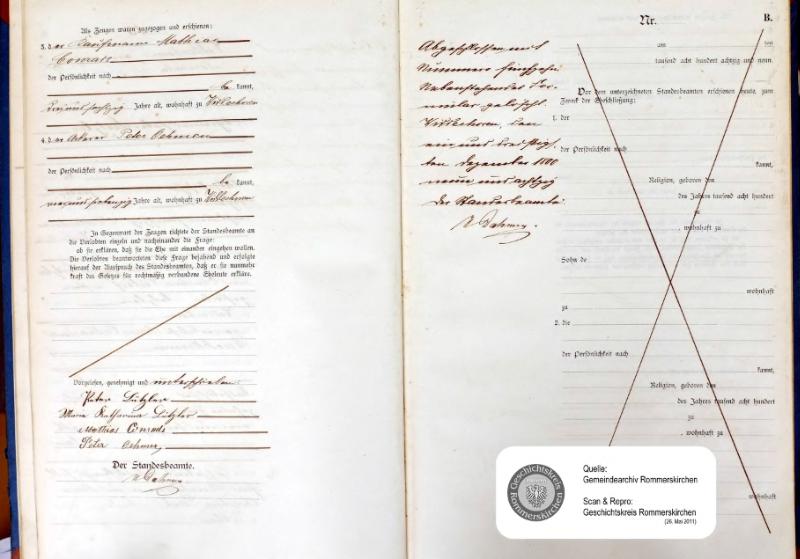 Als Zeugen waren zugezogen und erschienen:
3. d er Kaufmann Mathias
Conrads
der Persönlichkeit nach
be kannt,
Jahre alt, wohnhaft zu
4. d er Ackerer Peter Oehmen
der Persönlichkeit nach
be kannt,
Jahre alt, wohnhaft zu
In Gegenwart der Zeugen richtete der Standesbeamte an
die Verlobten einzeln und nacheinander die Frage:
ob sie erklären, daß sie die Ehe mit einander eingehen wollen.
Die Verlobten beantworteten diese Frage bejahend und erfolgte
hierauf der Ausspruch des Standesbeamten, daß er sie nunmehr
kraft des Gesetzes für rechtmäßig verbundene Eheleute erkläre.
Vorgelesen, genehmigt und unterschrieben
Peter Lützler
Maria Katharina Lützler
Mathias Conrads
Peter Oehmen
Der Standesbeamte.
Dahmen
Abgeschlossen mit
Nummero fünfzehn
Nebenstehendes For-
mular gelöscht.
den
ein und dreißig-
sten Dezember 1800
neun und achtzig
Der Standesbeamte
Dahmen
Nr.
B.
am ten
tausend acht hundert achtzig und neun.
Vor dem unterzeichneten Standesbeamten erschienen heute, zum
Zweck der Eheschließung:
1. der
der Persönlichkeit nach
kannt,
Religion, geboren den
des Jahres tausend acht hundert
zu
, wohnhaft zu
Sohn de
wohnhaft
zu
2. die
der Persönlichkeit nach
kannt,
Religion, geboren den
des Jahres tausend acht hundert
zu
, wohnhaft zu
wohnhaft
Geschichtskreis
Rommerskirchen
Quelle:
Gemeindearchiv Rommerskirchen
Scan & Repro:
Geschichtskreis Rommerskirchen
(26. Mai 2011)